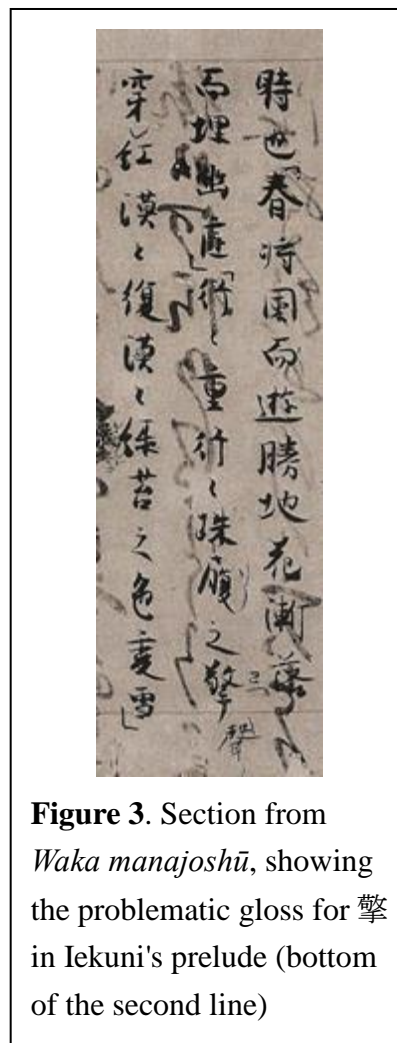 時也春 風而遊勝地花漸落
而埋幽庭衍〻重衍〻珠履之擎
聲
穿紅漠〻復漠〻緑苔之色変雪
Figure 3. Section from
Waka manajoshū, showing
the problematic gloss for 擎
in Iekuni's prelude (bottom
of the second line)